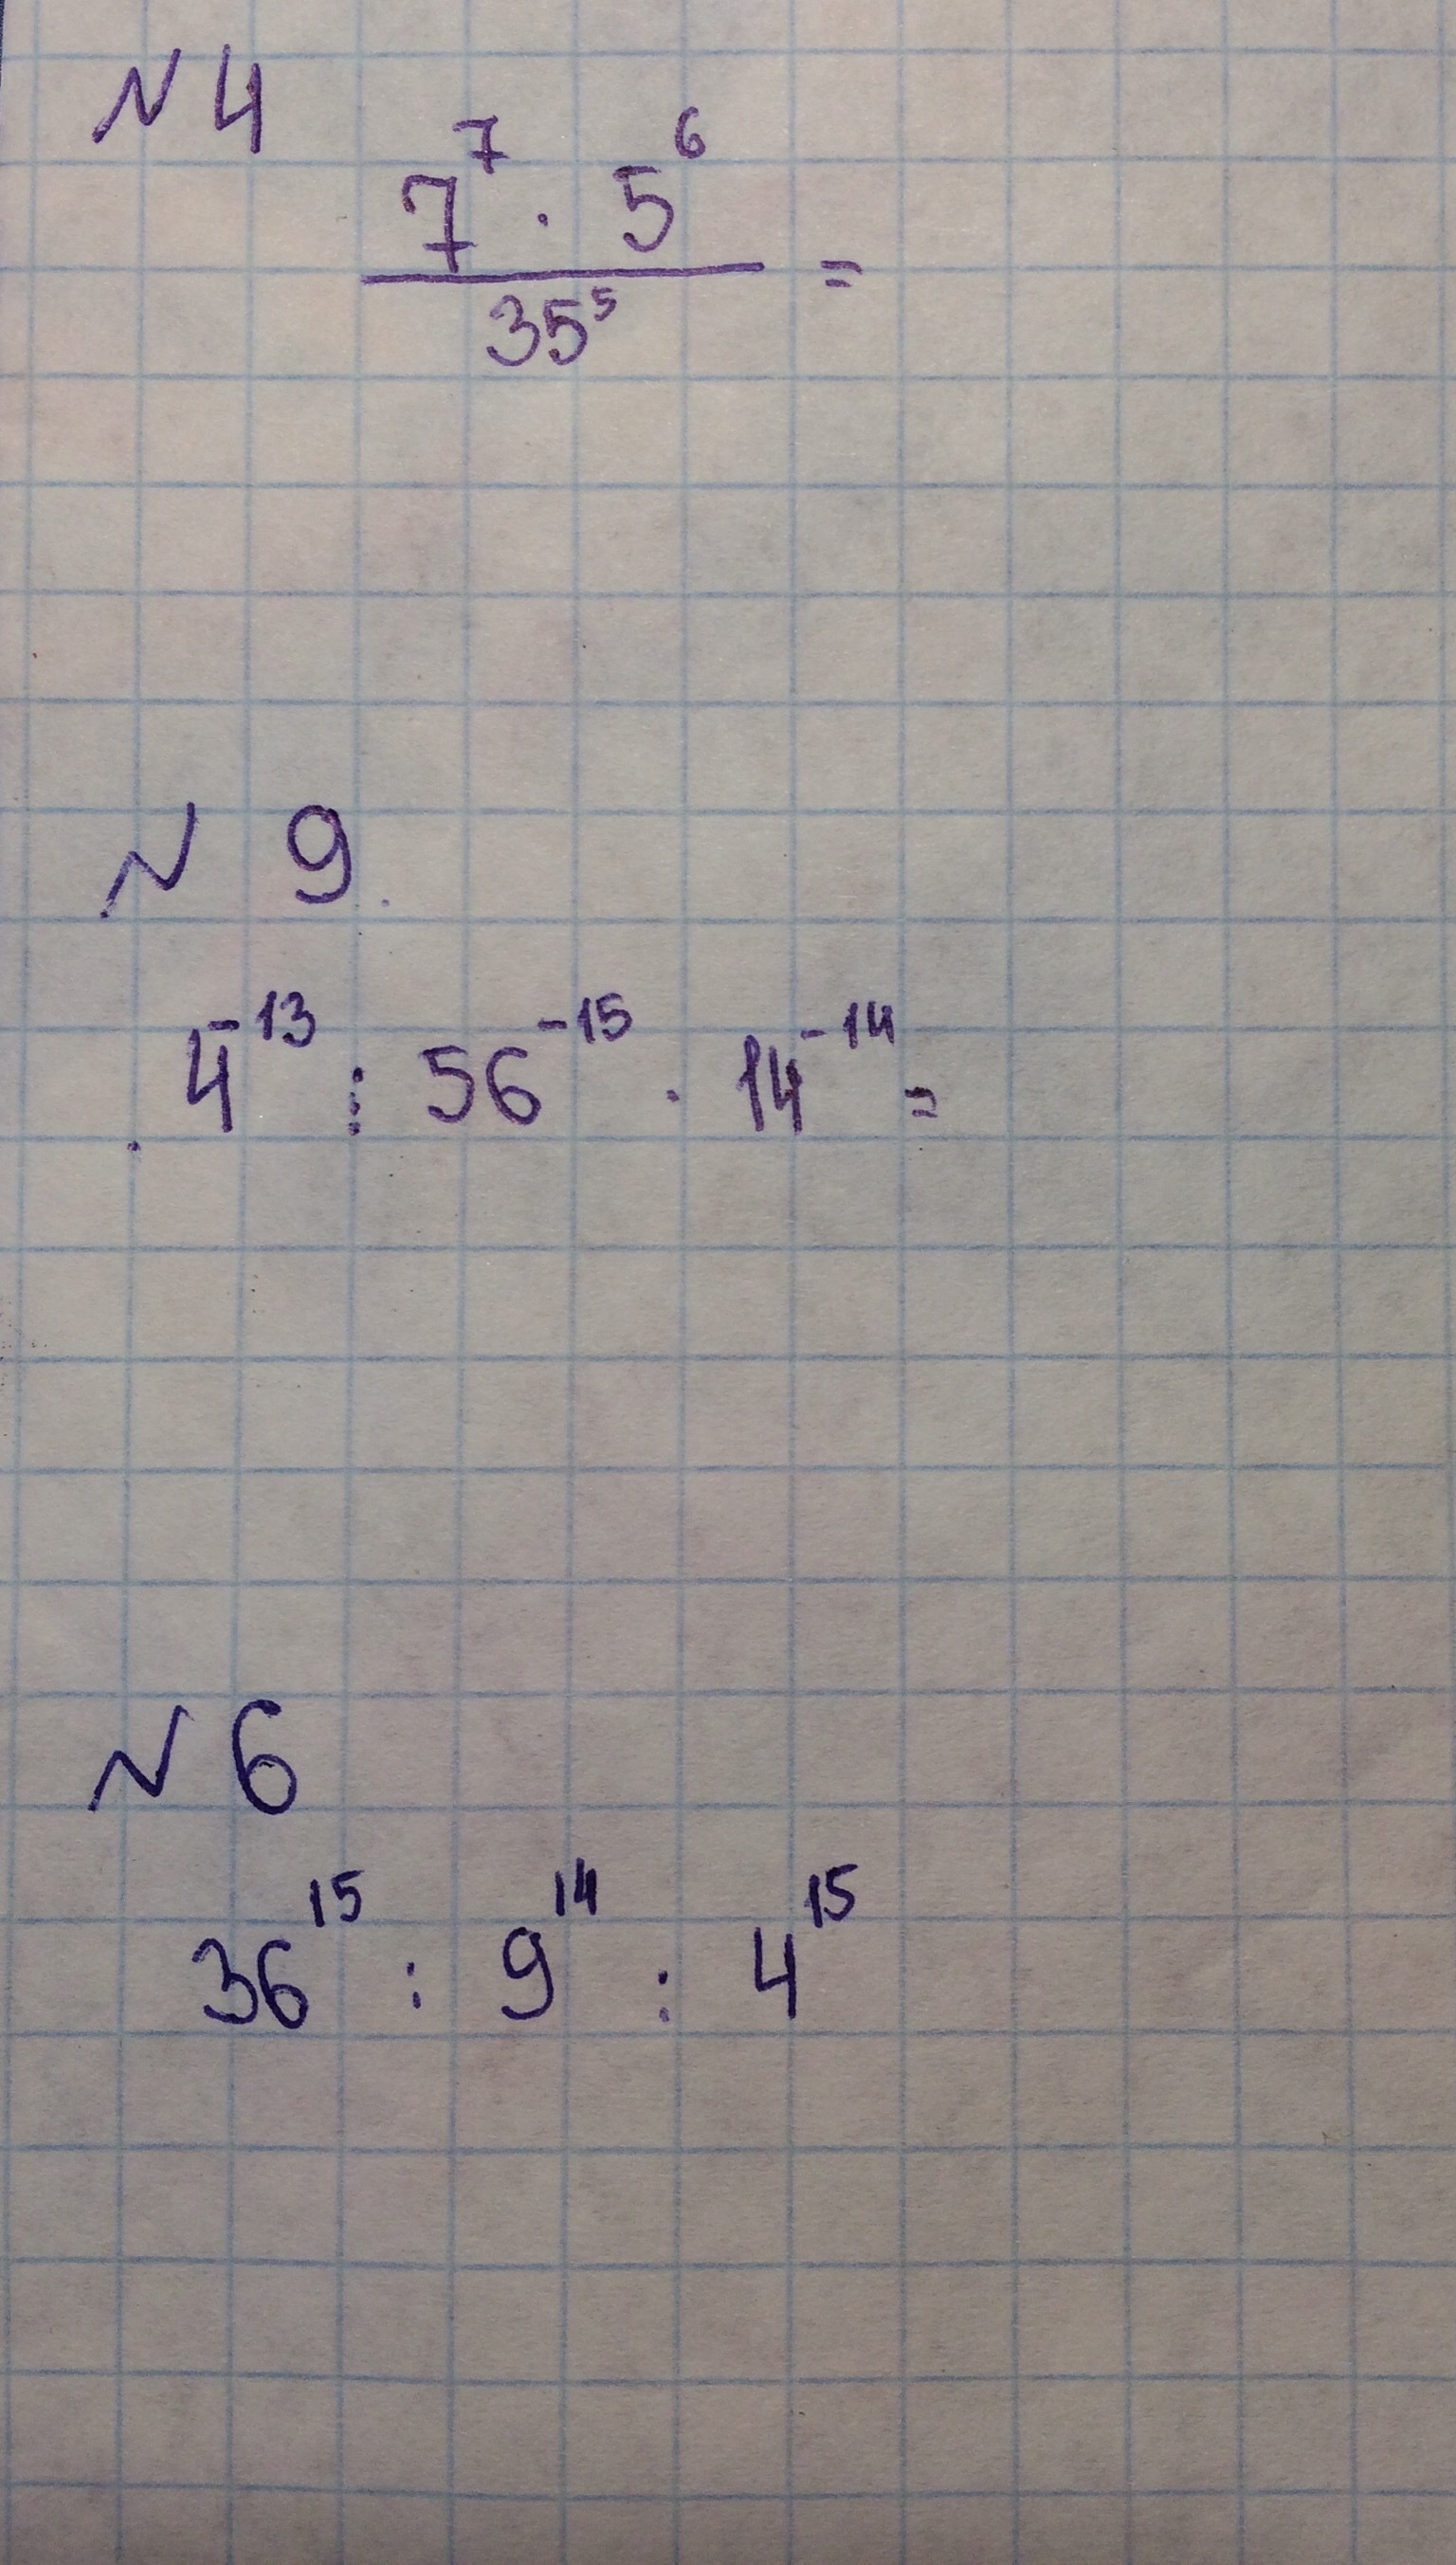 N 4
7⁷ · 5⁶
35⁵ =
N 9.
4⁻¹³ : 56⁻¹⁵ · 14⁻¹⁴ =
N 6
36¹⁵ : 9¹⁴ : 4¹⁵